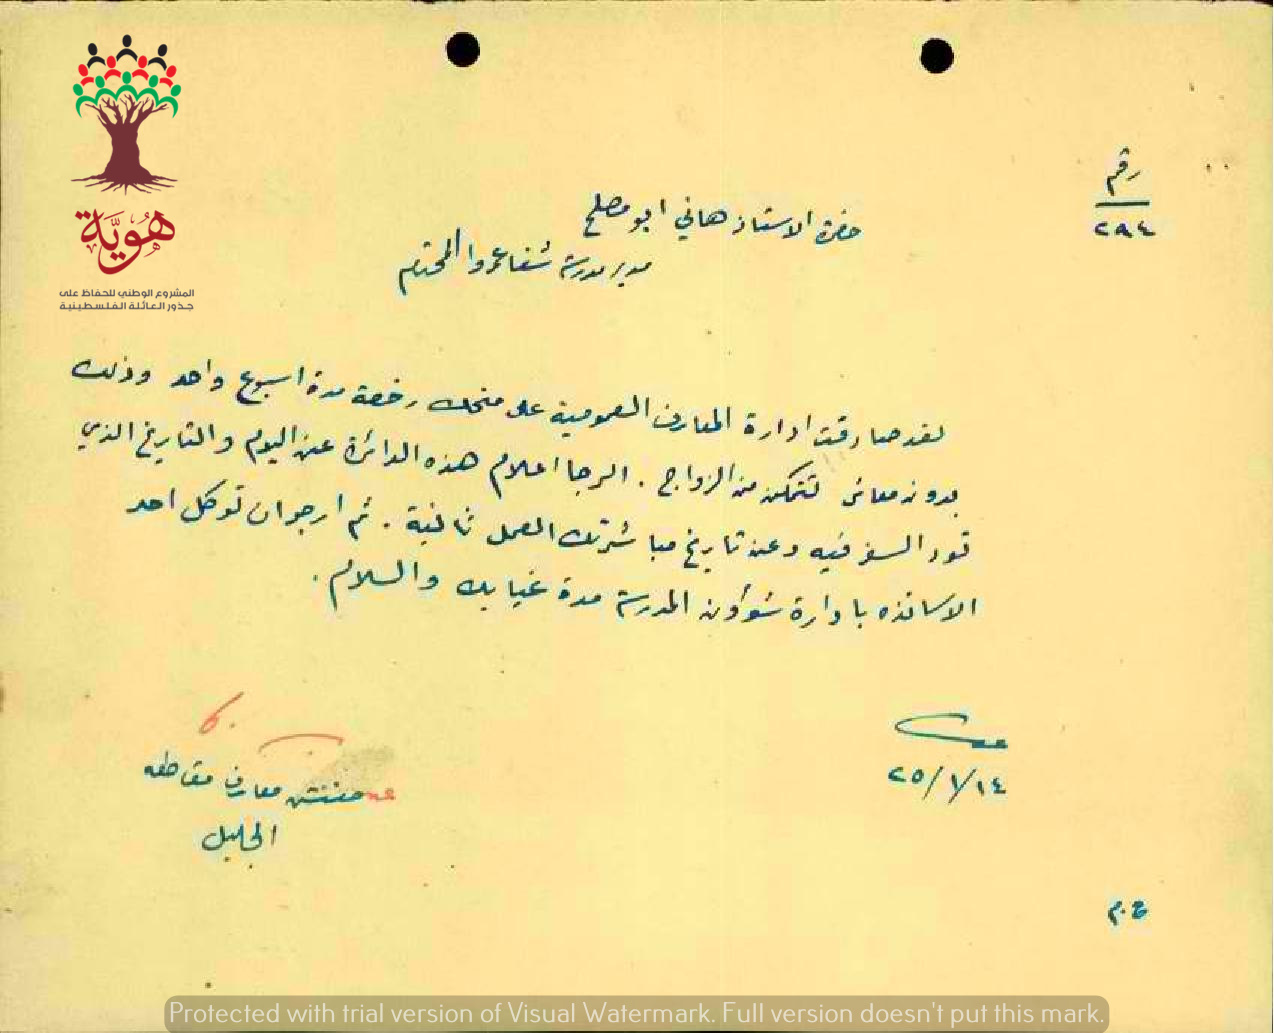 هوية
المشروع الوطني للحفاظ على
جذور العائلة الفلسطينية
رقم
٢٩٤
حضرة الاستاذ هاني ابو مصلح
مدير مدرسة شفاعمرو المحترم
لقد صادقت ادارة المعارف العمومية على منحك رخصة مدة اسبوع واحد وذلك
بدون معاش لتتمكن من الزواج . الرجا اعلام هذه الدائرة عن اليوم والتاريخ الذي
تود السفر فيه وعن تاريخ مباشرتك العمل ثانية . ثم ارجو ان توكل احد
الاساتذه بادارة شؤون المدرسة مدة غيابك والسلام .
عكا
٢٥/١/١٤
مفتش معارف مقاطعه
الجليل
ع.م
Protected with trial version of Visual Watermark. Full version doesn't put this mark.